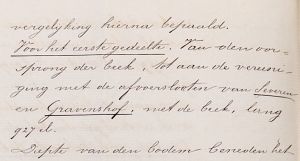 vergelyking hierna bepaald.
Voor het eerste gedeelte. Van den oor-
sprong der beek, tot aan de vereeni-
ging met de afvoerslooten van Severen
en Gravenshof, met de beek, lang
927 el.
Diepte van den bodem beneden het